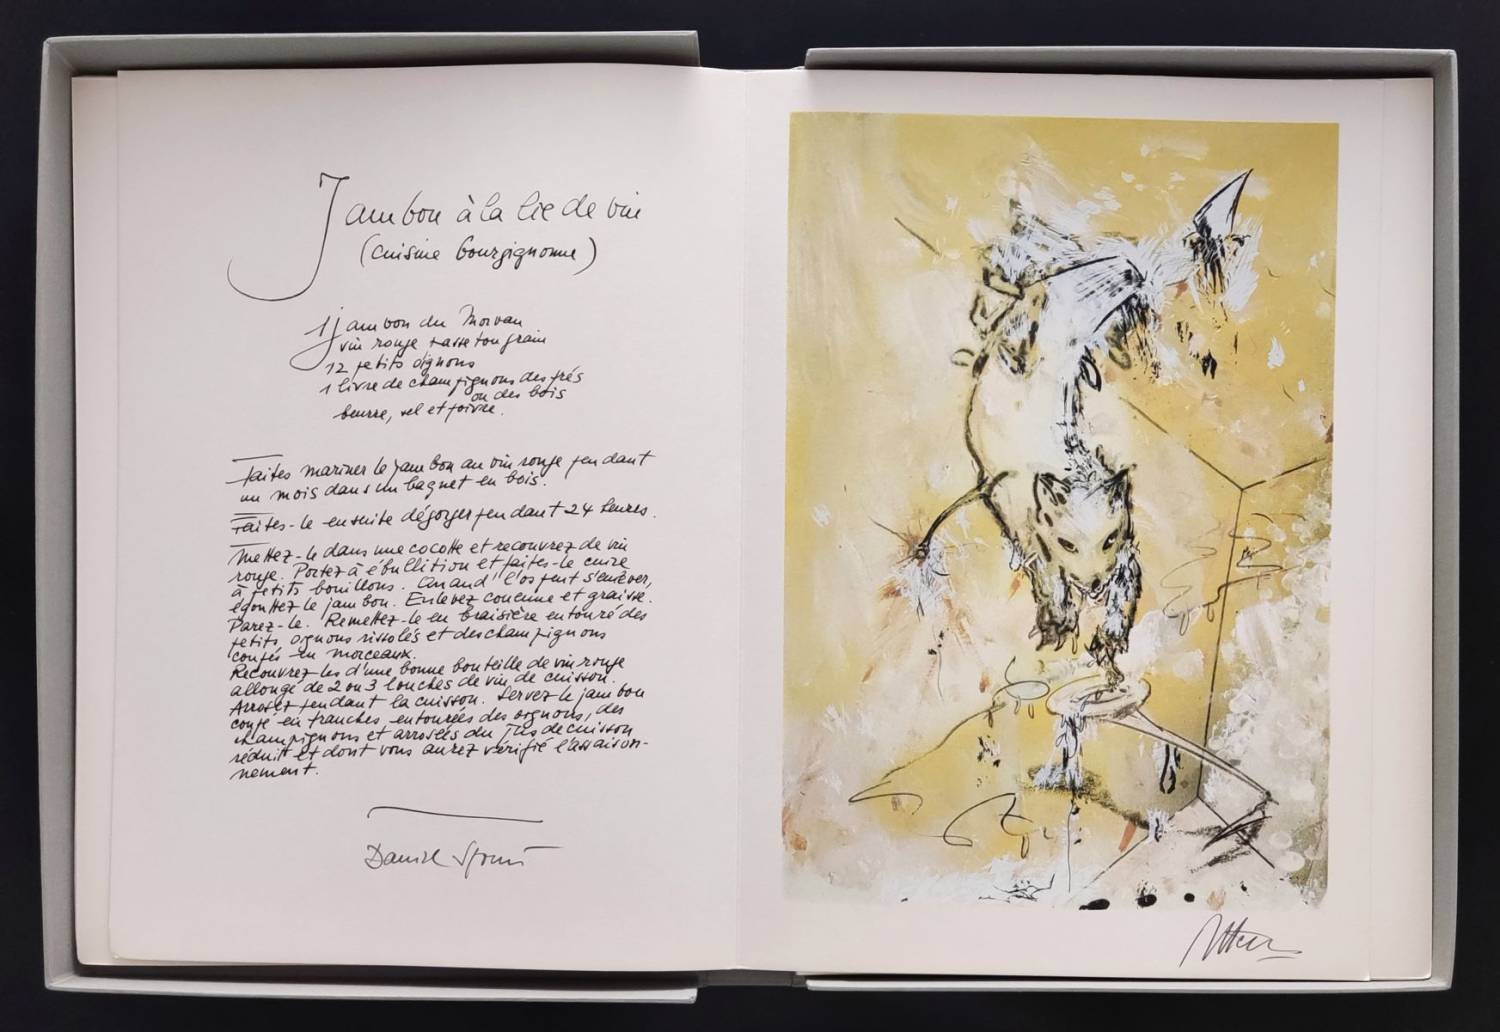 Jambon à la lie de vin
(cuisine bourgignonne)
1 jambon du Morvan
vin rouge passetougrain
12 petits oignons
1 livre de champignons des prés
ou des bois
beurre, sel et poivre.
Faites mariner le jambon au vin rouge pendant
un mois dans un baquet en bois.
Faites-le ensuite dégorger pendant 24 heures.
Mettez-le dans une cocotte et recouvrez de vin
rouge. Portez à ébullition et faites-le cuire
à petits bouillons. Quand l'os peut s'enlever,
égouttez le jambon. Enlevez couenne et graisse.
Parez-le. Remettez-le en braisière entouré des
petits oignons rissolés et des champignons
coupés en morceaux.
Recouvrez-les d'une bonne bouteille de vin rouge
allongé de 2 ou 3 louches de vin de cuisson.
Arrosez pendant la cuisson. Servez le jambon
coupé en tranches, entourées des oignons, des
champignons et arrosées du jus de cuisson
réduit et dont vous aurez vérifié l'assaison-
nement.
Daniel Spoerri